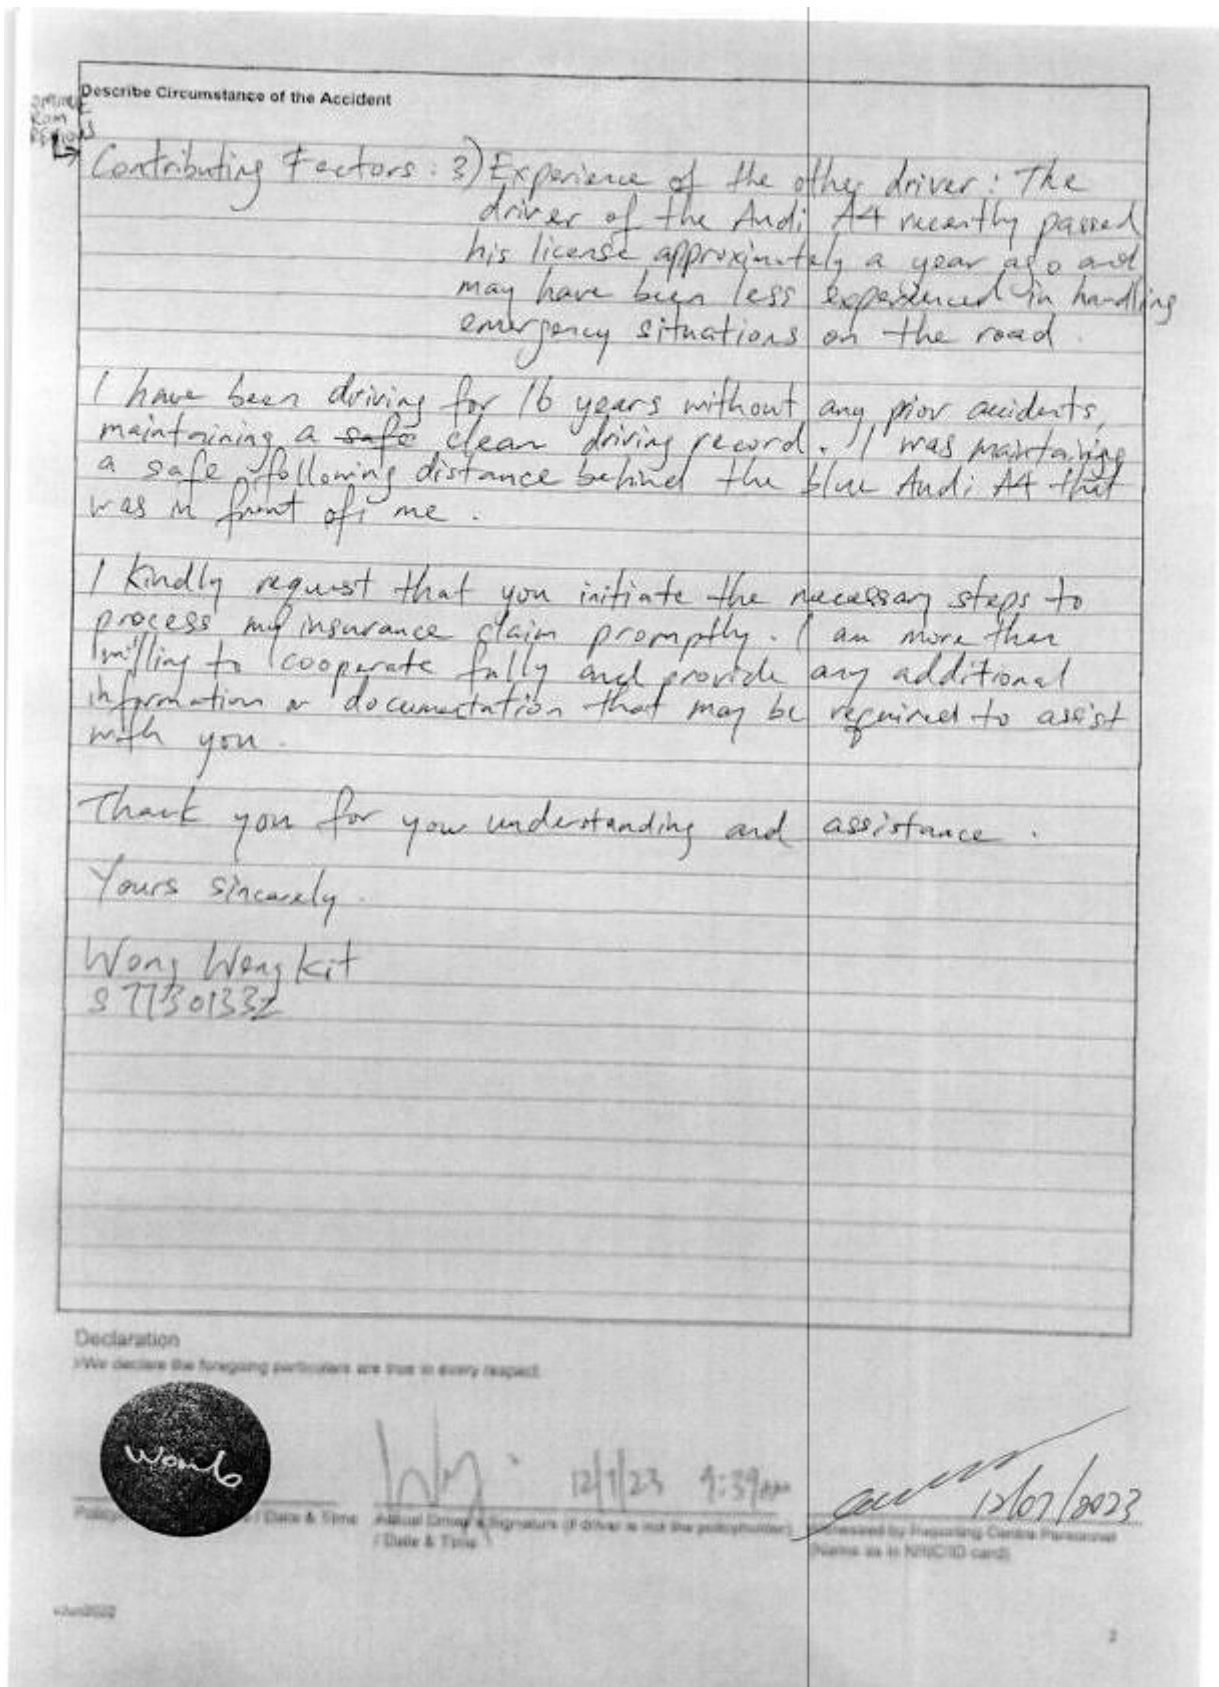 Describe Circumstance of the Accident
Contributing Factors : 3) Experience of the other driver : The
driver of the Audi A4 recently passed
his license approximately a year ago and
may have been less experienced in handling
emergency situations on the road.
I have been driving for 16 years without any prior accidents,
maintaining a safe clean driving record. I was maintaining
a safe following distance behind the blue Audi A4 that
was in front of me.
I kindly request that you initiate the necessary steps to
process my insurance claim promptly. I am more than
willing to cooperate fully and provide any additional
information or documentation that may be required to assist
with you.
Thank you for your understanding and assistance.
Yours sincerely.
Wong Weng Kit
S7730133Z
Declaration
I/We declare the foregoing particulars are true in every respect.
12/7/23 9:39am
12/07/2023
/ Date & Time
Actual Driver's Signature (if driver is not the policyholder)
/ Date & Time
Witnessed by Reporting Centre Personnel
(Name as in NRIC/ID card)
2